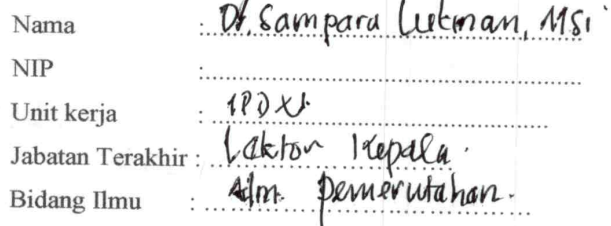 Nama : Dr. Sampara Lukman, MSi
NIP :
Unit kerja : IPDN
Jabatan Terakhir : Lektor Kepala.
Bidang Ilmu : Adm. Pemerintahan.